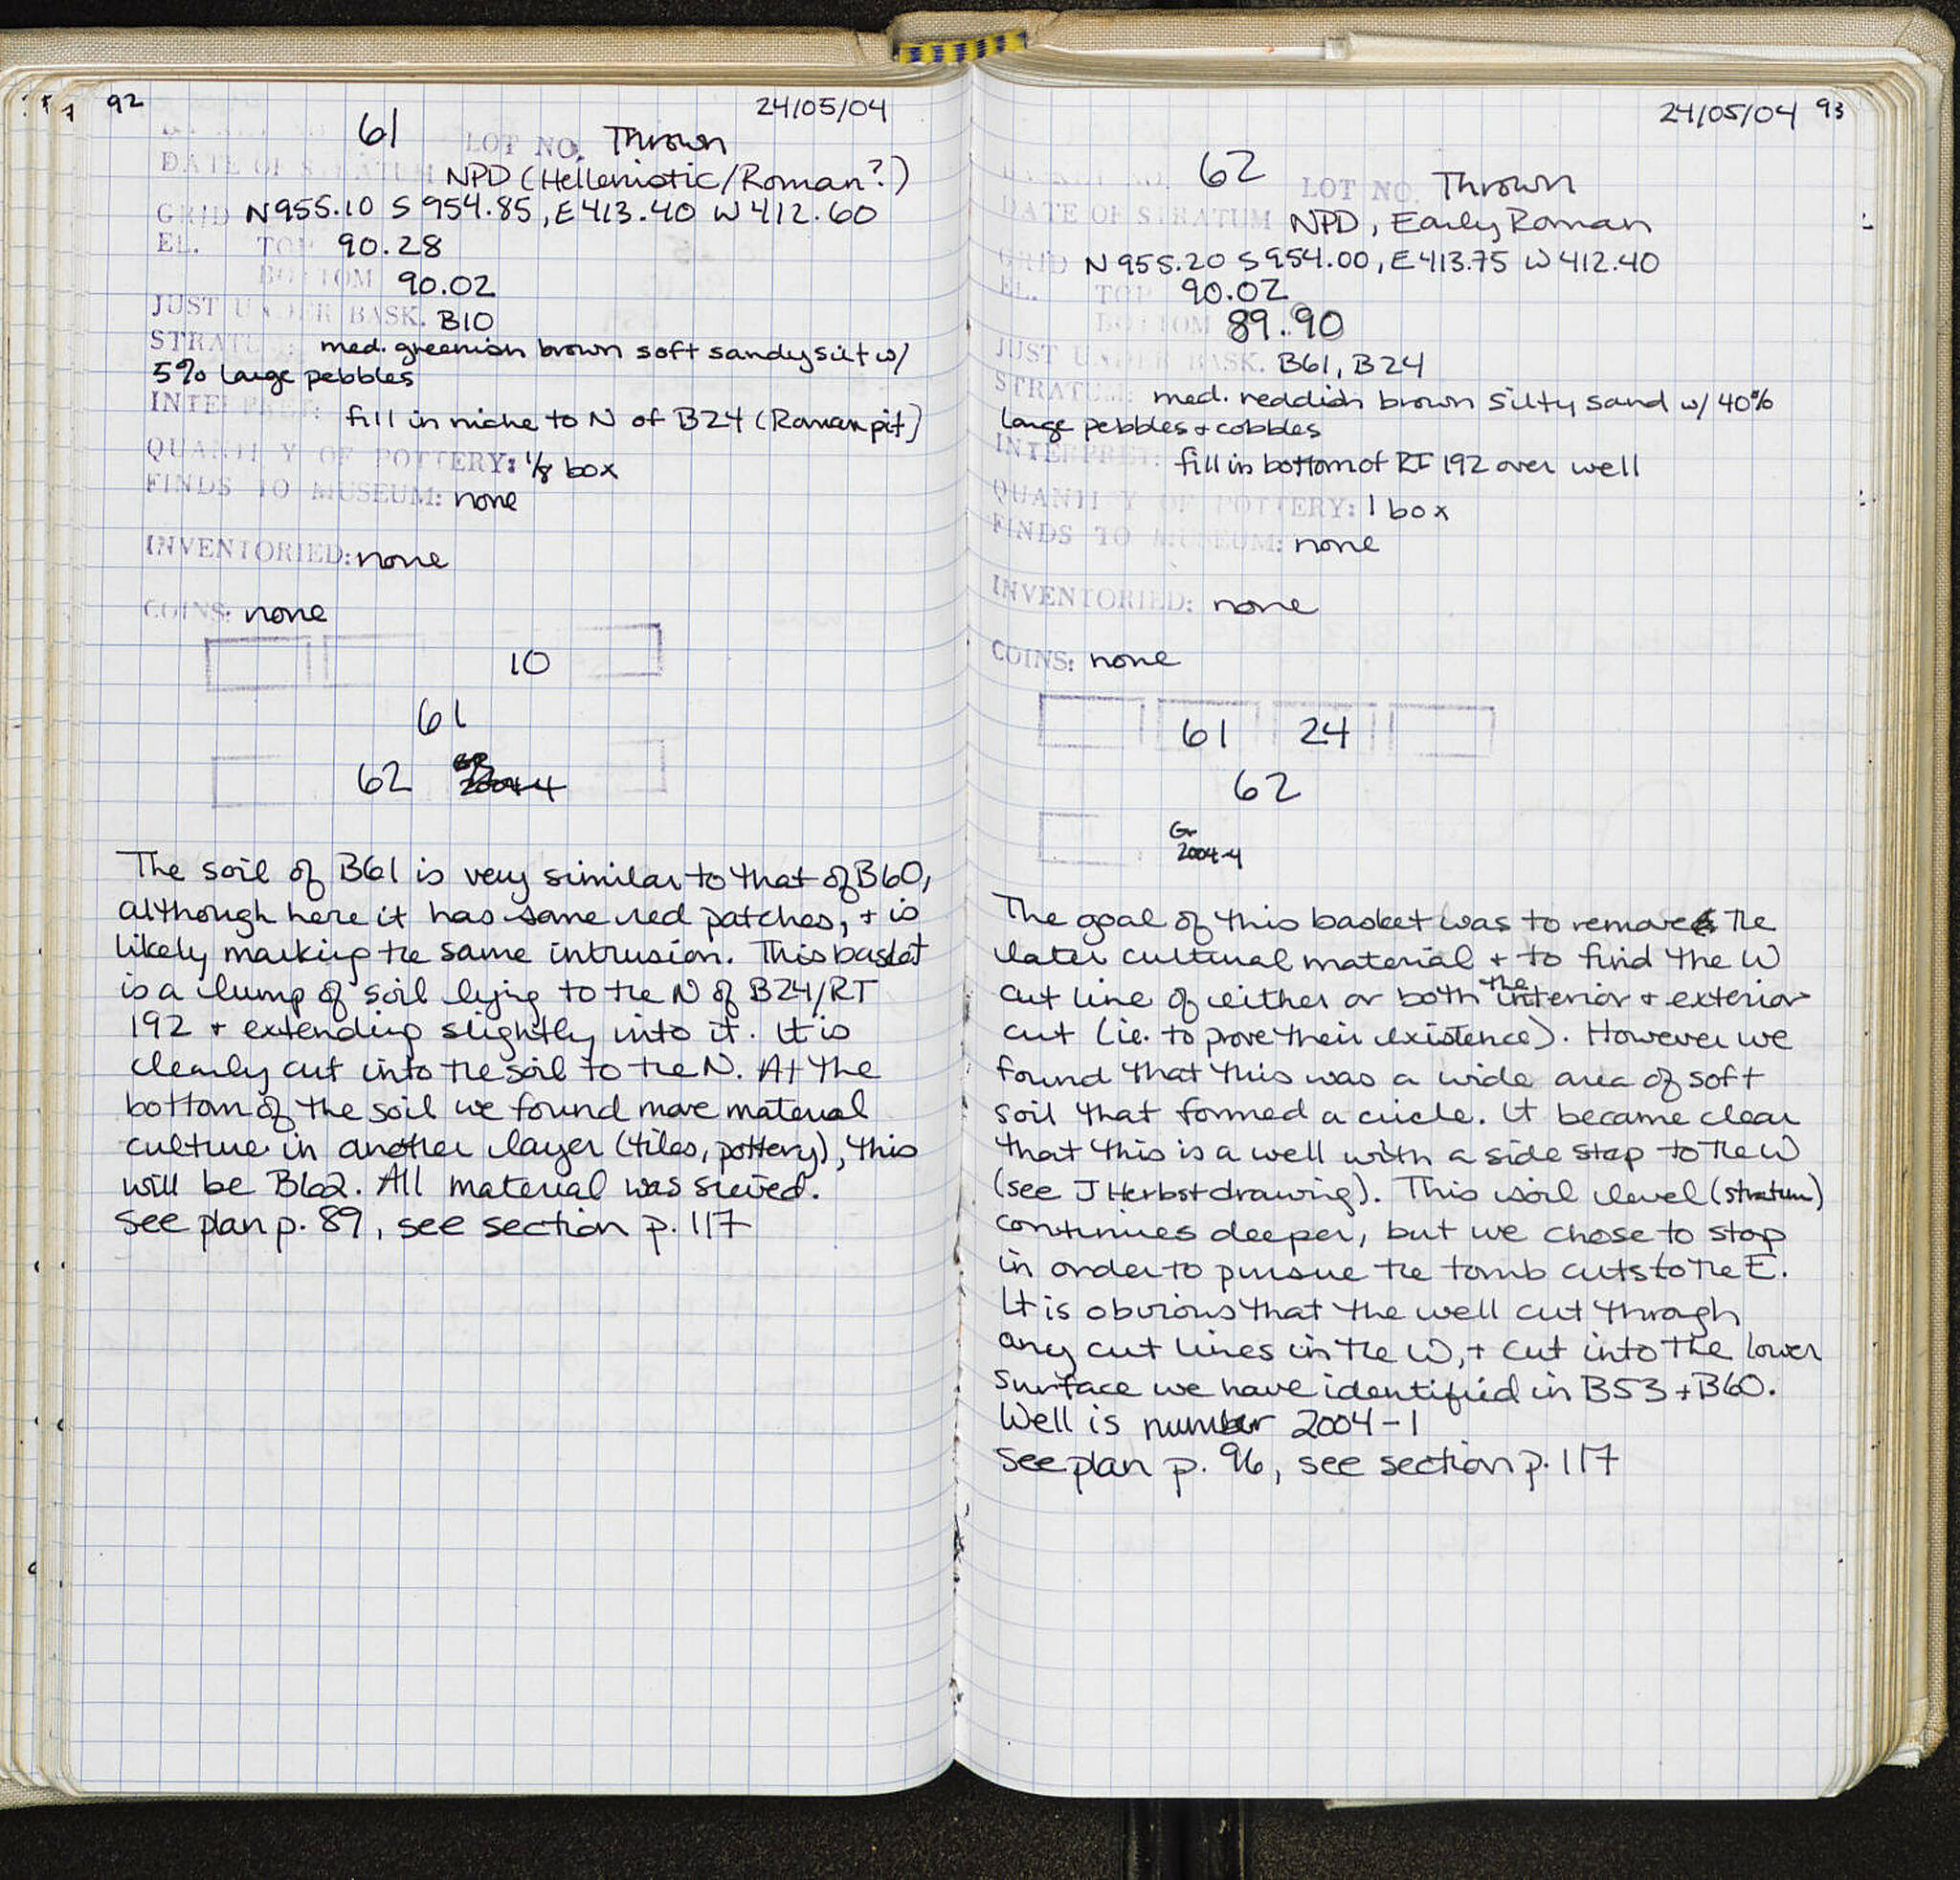 92
24/05/04
61 LOT NO. Thrown
DATE OF STRATUM NPD (Hellenistic/Roman?)
GRID N955.10 S954.85, E413.40 W412.60
EL. TOP 90.28
BOTTOM 90.02
JUST UNDER BASK. B10
STRATUM: med. greenish brown soft sandy silt w/
5% large pebbles
INTERPRET: fill in niche to N of B24 (Roman pit)
QUANTITY OF POTTERY: 1/8 box
FINDS TO MUSEUM: none
INVENTORIED: none
COINS: none
10
61
62
The soil of B61 is very similar to that of B60,
although here it has some red patches, + is
likely marking the same intrusion. This basket
is a lump of soil lying to the N of B24/RT
192 + extending slightly into it. It is
clearly cut into the soil to the N. At the
bottom of the soil we found more material
culture in another layer (tiles, pottery), this
will be B62. All material was sieved.
See plan p. 89, see section p. 117
24/05/04 93
BASKET NO. 62 LOT NO. Thrown
DATE OF STRATUM NPD, Early Roman
GRID N955.20 S954.00, E413.75 W412.40
EL. TOP 90.02
BOTTOM 89.90
JUST UNDER BASK. B61, B24
STRATUM: med. reddish brown silty sand w/ 40%
large pebbles + cobbles
INTERPRET: fill in bottom of RT 192 over well
QUANTITY OF POTTERY: 1 box
FINDS TO MUSEUM: none
INVENTORIED: none
COINS: none
61 24
62
Gr
2004-4
The goal of this basket was to remove the
later cultural material + to find the W
cut line of either or both the interior + exterior
cut (ie. to prove their existence). However we
found that this was a wide area of soft
soil that formed a circle. It became clear
that this is a well with a side step to the W
(see J Herbst drawing). This soil level (stratum)
continues deeper, but we chose to stop
in order to pursue the tomb cuts to the E.
It is obvious that the well cut through
any cut lines in the W, + cut into the lower
surface we have identified in B53 + B60.
Well is number 2004-1
See plan p. 96, see section p. 117